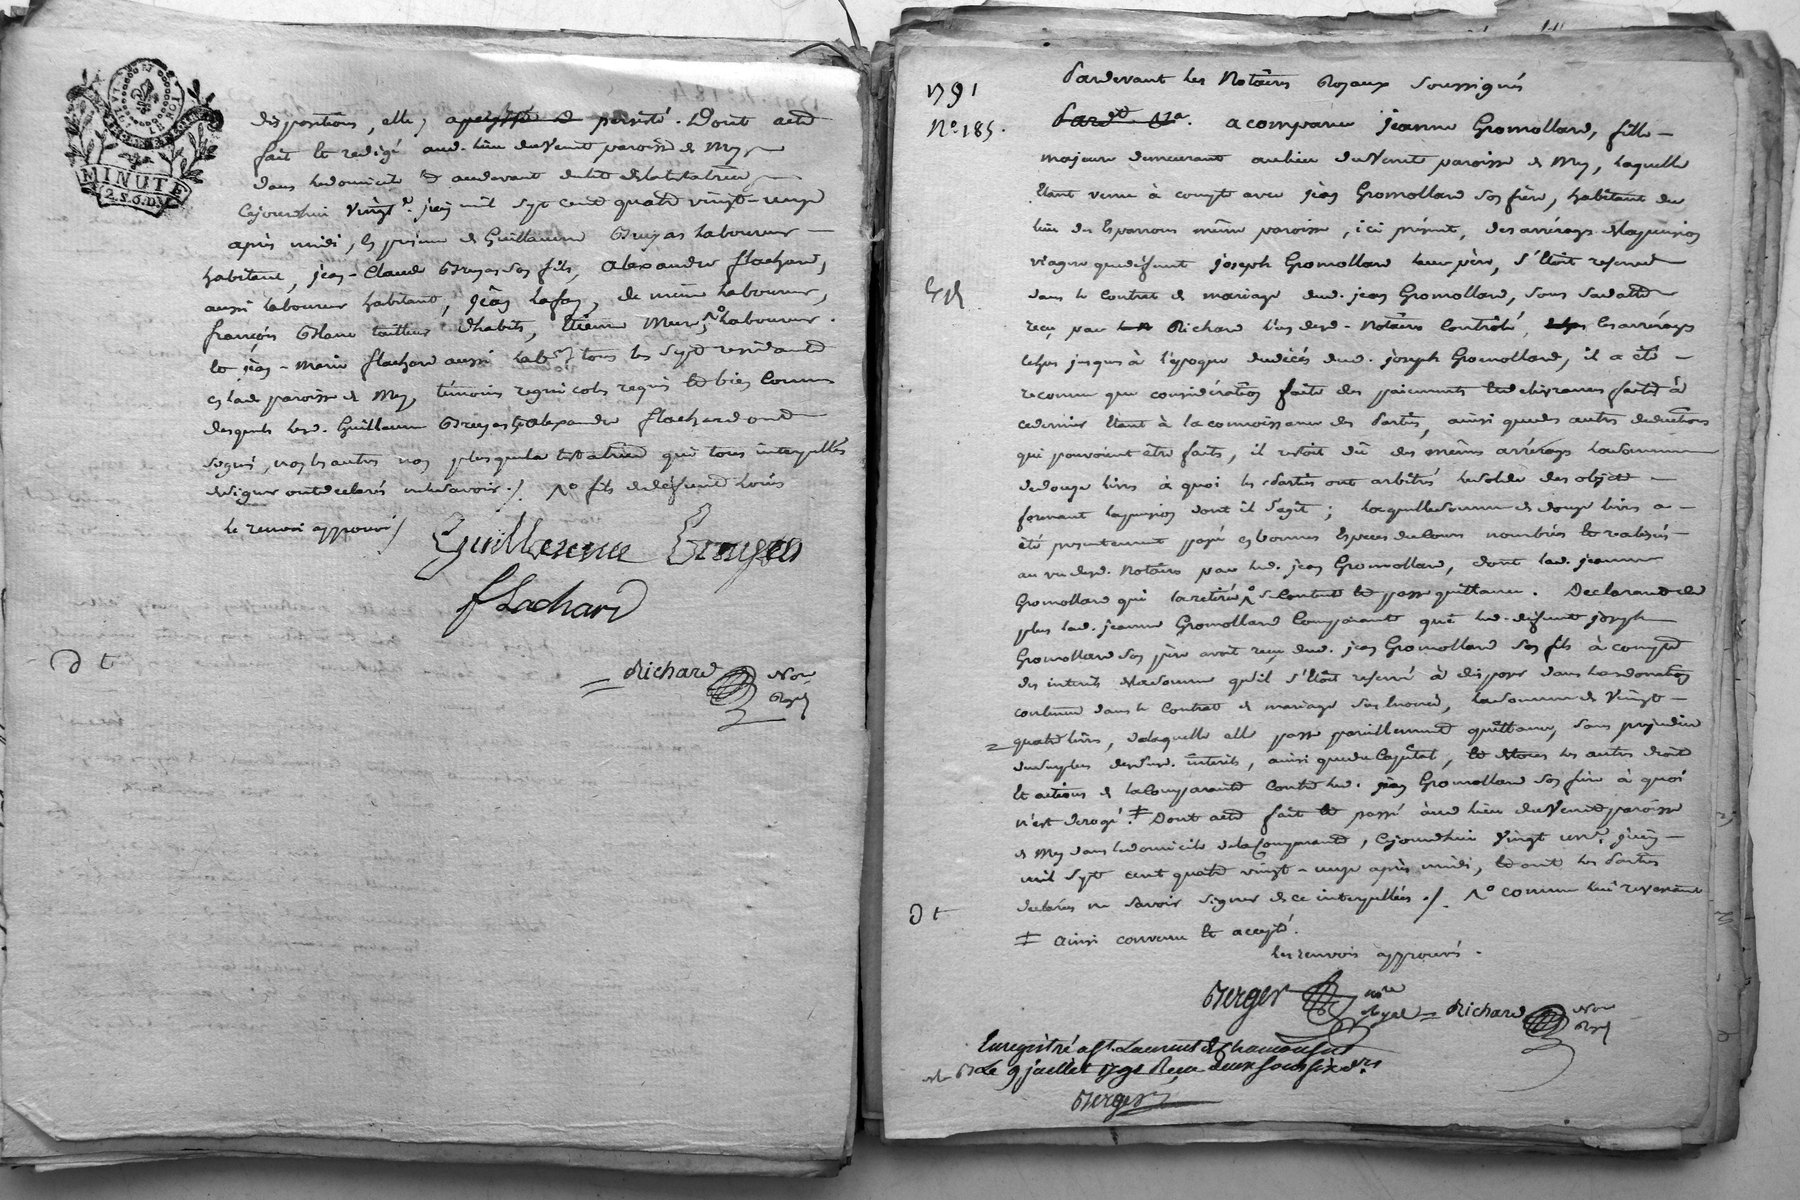 MINUTE
2.S.6.D.
dispositions, elle y a persisté. Dont acte
fait et redigé aud. lieu du Venit paroisse de Mey
dans le domicile et audevant du lit de la testatrice
Cejourdhui vingt juin mil sept cent quatre vingt-onze
après midi, en présence de Guillaume Bruyas laboureur
habitant, jean-Claude Bruyas son fils, Alexandre flachard,
aussi laboureur habitant, jean Lafay, de même laboureur,
françois Blanc tailleur d'habits, Etienne laboureur.
et jean-Marie flachard aussi lab.r tous les sept residants
en lad. paroisse de Mey, témoins regnicoles requis et bien connus
desquels led. Guillaume Bruyas & alexandre flachard ont
signé, non les autres non plus que la testatrice qui tous interpellés
de signer ont declarés ne le savoir ./. fils de defunt Loüis
le renvoi approuvé /
Guillaume Bruyas
flachard
D t
= Richard Nore
Royal
1791
N.o 185.
Pardevant les Notaires Royaux Soussignés
a comparu jeanne Gromollard, fille
majeure demeurant au lieu du Venit paroisse de Mey, laquelle
Etant venue à compte avec jean Gromollard son frère, habitant du
lieu des Esparrons même paroisse, ici présent, des arrérages de la pension
viagere que défunt joseph Gromollard leur père, s'étoit reservée
dans le Contrat de mariage dud. jean Gromollard, sous sa datte
reçu par Richard l'un desd. Notaires Controlé, les arrérages
échus jusques à l'epoque du décès dud. joseph Gromollard, il a été
reconnu que considération faite des paiements et delivrances faites à
ce dernier Etant à la connoissance des Parties, ainsi que des autres deductions
qui pouvoient être faites, il restoit dû des mêmes arrérages la somme
de douze livres à quoi les Parties ont arbitrés le solde des objets
formant la pension dont il s'agit ; laquelle somme de douze livres a
été presentement payé en bonnes Espèces du Cours nombrées et realisées
au vu desd. Notaires par led. jean Gromollard, dont lad. jeanne
Gromollard qui l'a retiré s'en Contente et passe quittance. Declarant de
plus lad. jeanne Gromollard Comparante que led. défunt joseph
Gromollard son père avoit reçu dud. jean Gromollard son fils à compte
des interets de la somme qu'il s'étoit reservé à disposer dans la donation
contenue dans le Contrat de mariage susénoncé, la somme de Vingt
quatre livres, de laquelle elle passe pareillement quittance, sans prejudice
du surplus desdits interets, ainsi que du Capital, et de tous les autres droits
et actions de la Comparante contre led. jean Gromollard son frère à quoi
n'est derogé. ‡ Dont acte fait et passé aud. lieu du Venit paroisse
de Mey dans le domicile de la Comparante, Cejourdhui vingt un.e juin
mil sept cent quatre vingt-onze après midi, et ont les Parties
declarées ne savoir signer de ce interpellées ./. comme lui revenant
‡ ainsi convenu et accepté.
D t
les renvois approuvés.
Berger nre Royal = Richard Nore Royal
Enregistré a St. Laurent de Chamousset
Le 9 juillet 1791 Reçu deux sous six d.rs
Berger